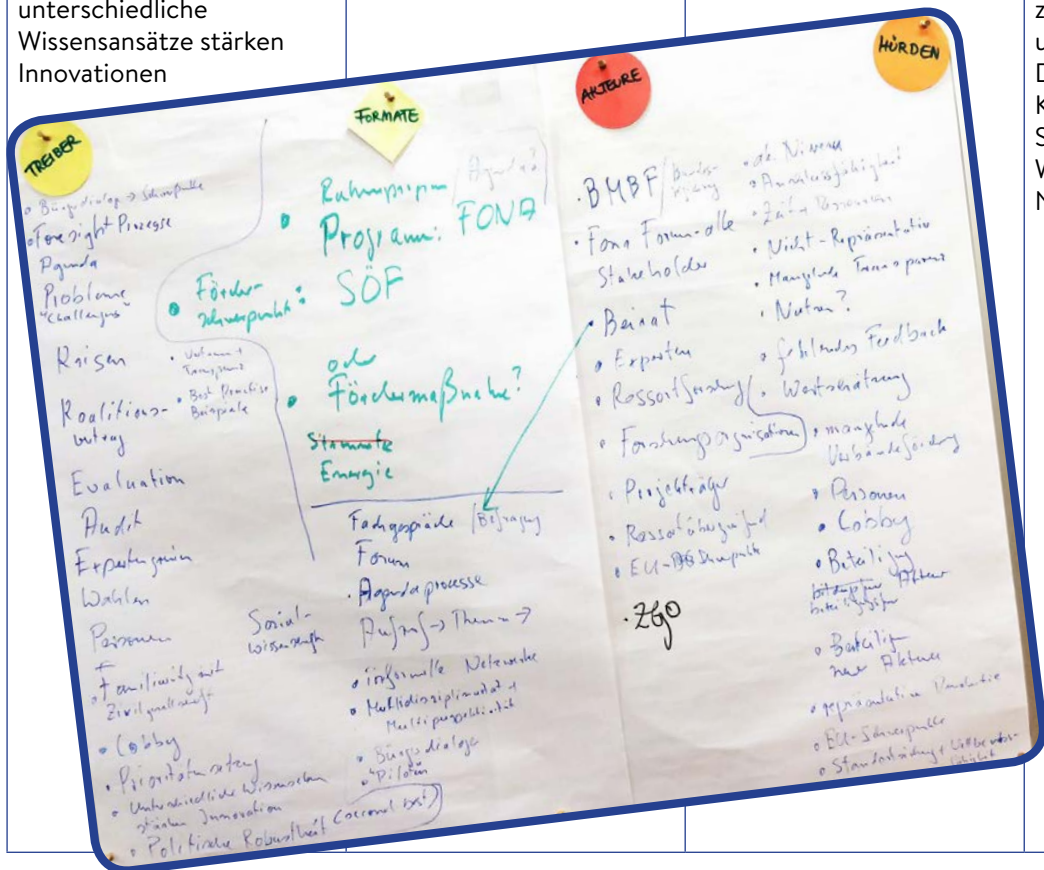 unterschiedliche
Wissensansätze stärken
Innovationen
TREIBER
Bürgerdialoge → Schwerpunkte
Foresight Prozesse
Agenda
Probleme
"Challenges"
Krisen
Vertrauen +
Transparenz
Best Practise
Beispiele
Koalitions-
vertrag
Evaluation
Audit
Expertengremien
Wahlen
Personen
Familiarity mit
Zivilgesellschaft
Lobby
Prioritätensetzung
Unterschiedliche Wissens
stärken Innovation
Politische Robustheit (second best)
FORMATE
Rahmenprogramm / Agenda?
Programm: FONA
Förder-
schwerpunkt: SÖF
oder
Fördermaßnahme?
Energie
Fachgespräche / Befragung
Forum
Agendaprozesse
Sozial-
wissenschaft
Aufruf → Themen →
informelle Netzwerke
Multidisziplinarität +
Multiperspektivität
Bürgerdialoge
Piloten
AKTEURE
BMBF /
Fona Forum - alle
Stakeholder
Beirat
Experten
Ressortforschung
Forschungsorganisationen
Projektträger
Ressortübergreifend
EU- Schwerpunkte
ZGO
HÜRDEN
Niveau
Anschlussfähigkeit
Zeit + Ressourcen
Nicht-Repräsentativ
Mangelnde Transparenz
Nutzen?
fehlendes Feedback
Wertschätzung
mangelnde
Verbändeförderung
Personen
Lobby
Beteiligung
Akteure
Beteiligung
neuer Akteure
repräsentative Demokratie
EU-Schwerpunkte
Standardisierung +
z
u
D
K
S
W
N